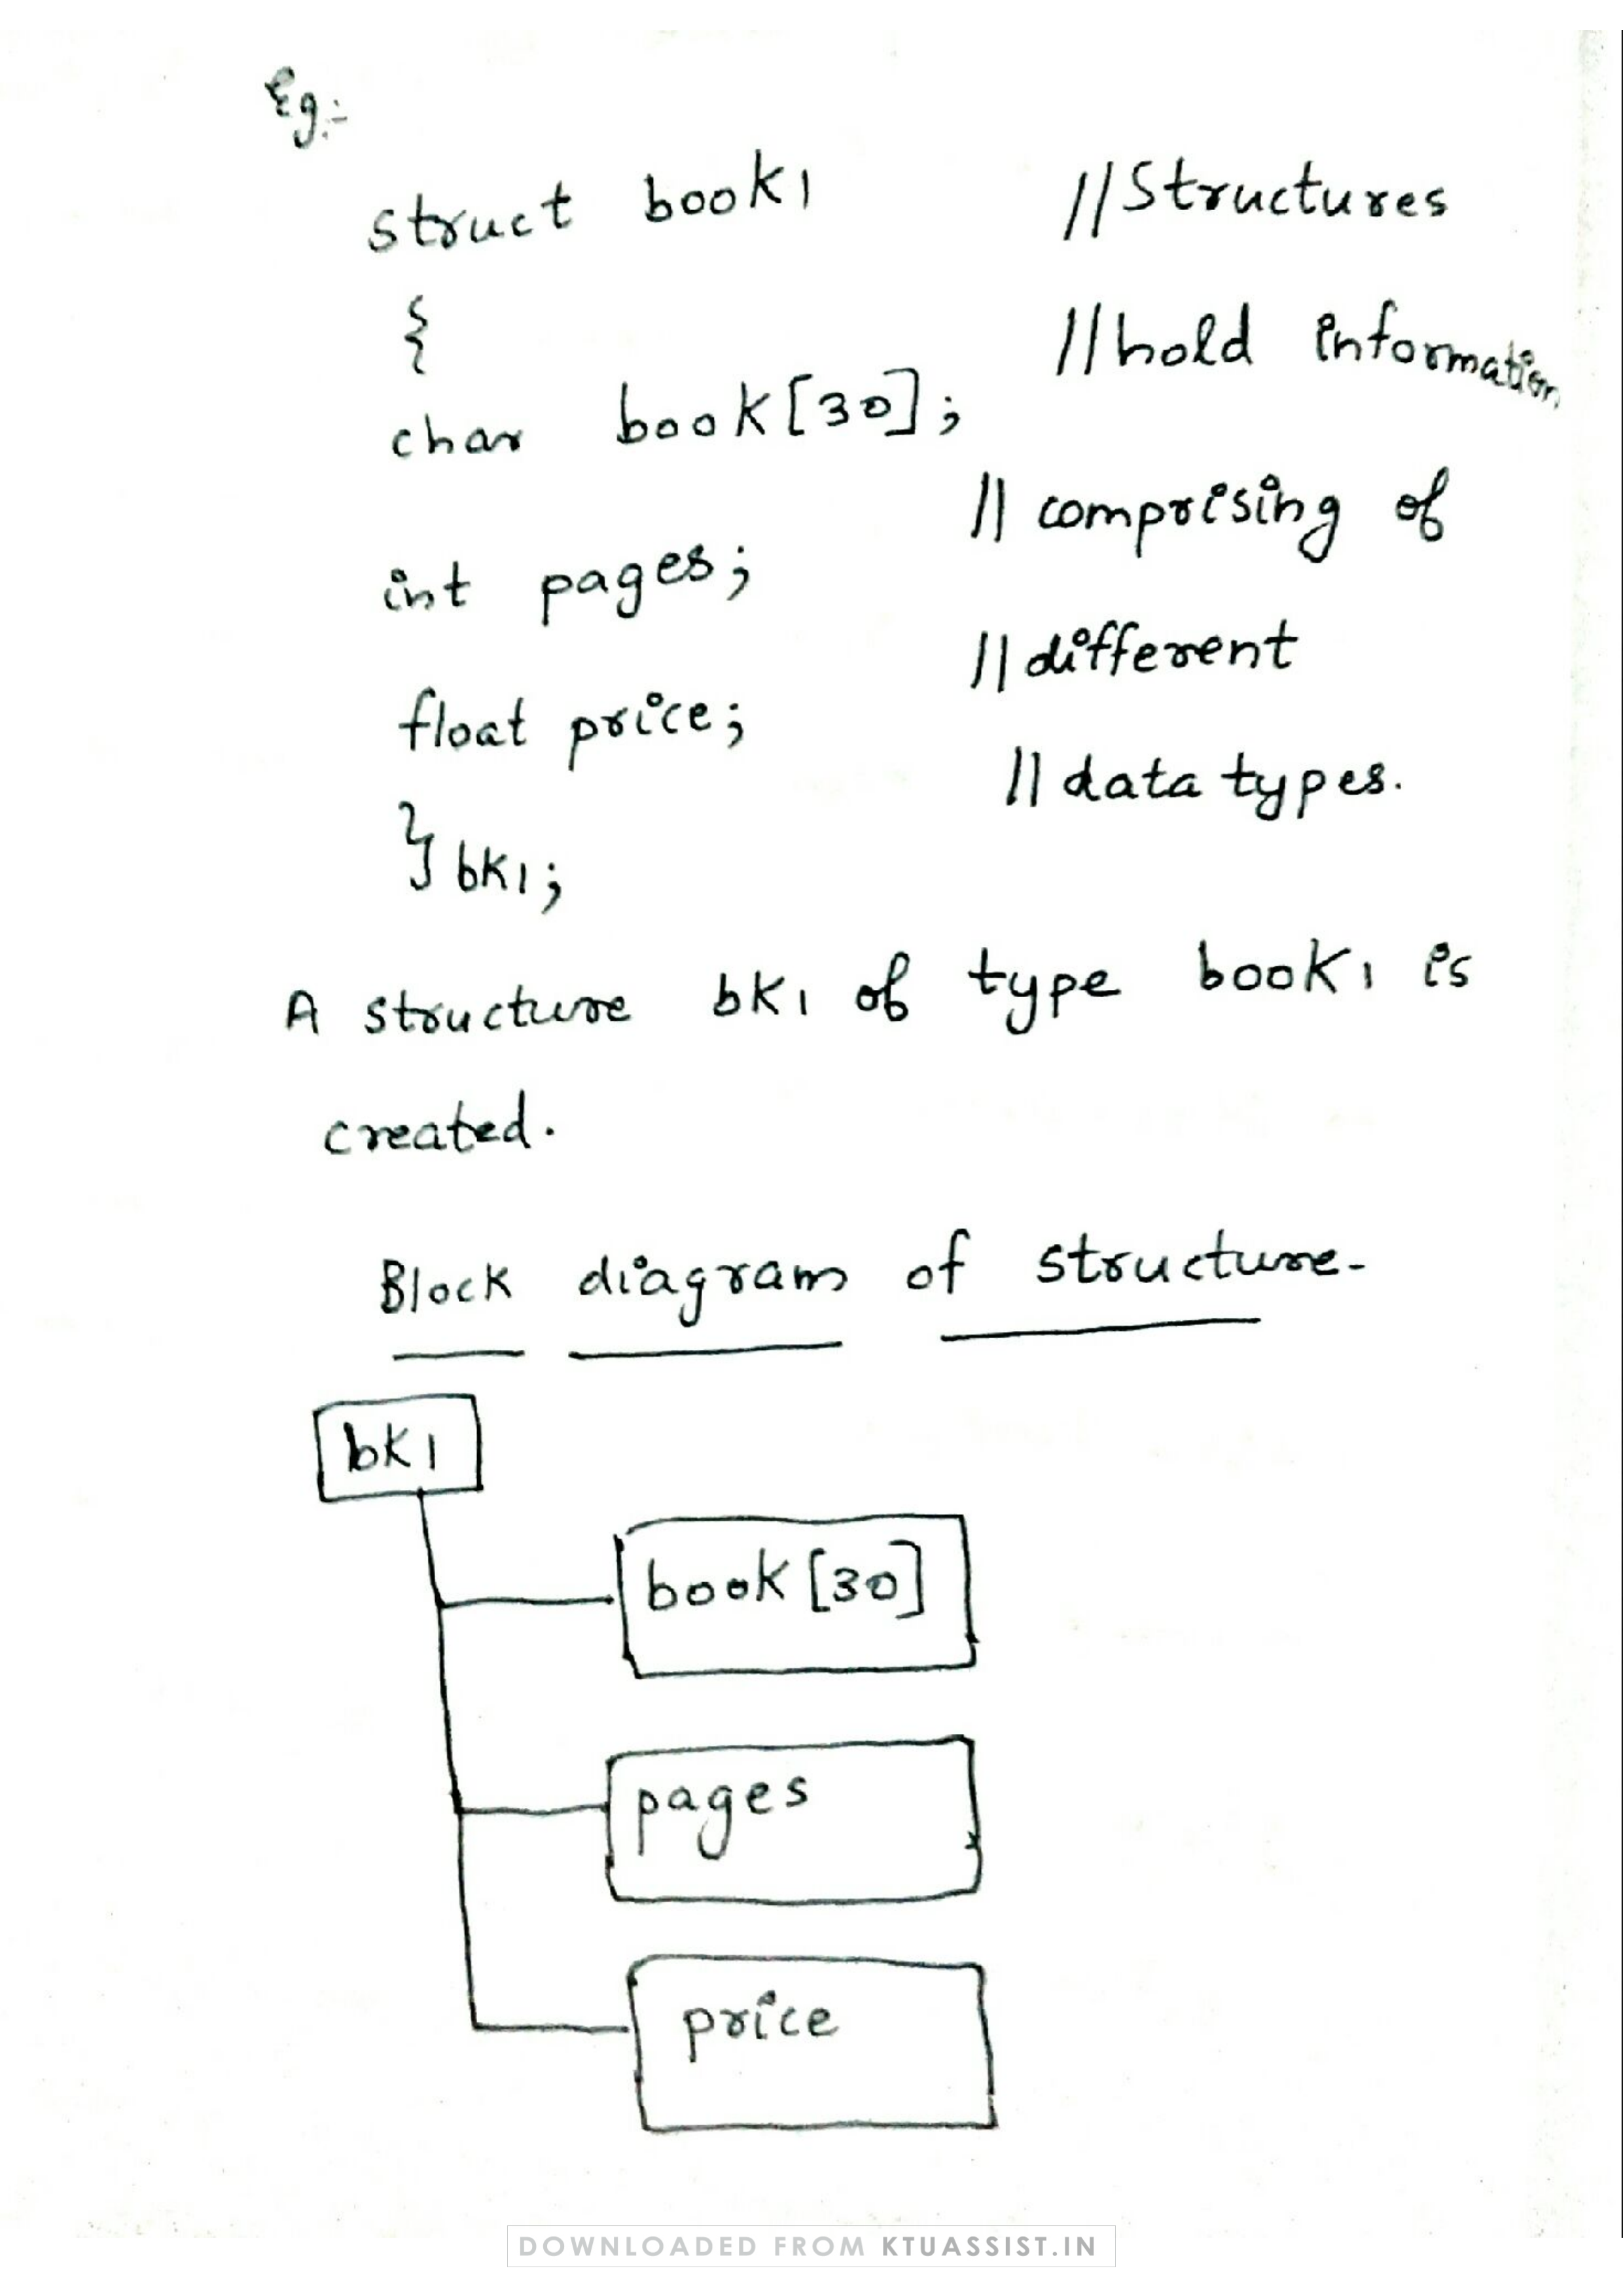 Eg:-
struct book1 //Structures
{ //hold information
char book[30];
// comprising of
int pages;
//different
float price;
// data types.
} bk1;
A structure bk1 of type book1 is
created.
Block diagram of structure-
bk1
book[30]
pages
price
DOWNLOADED FROM KTUASSIST.IN